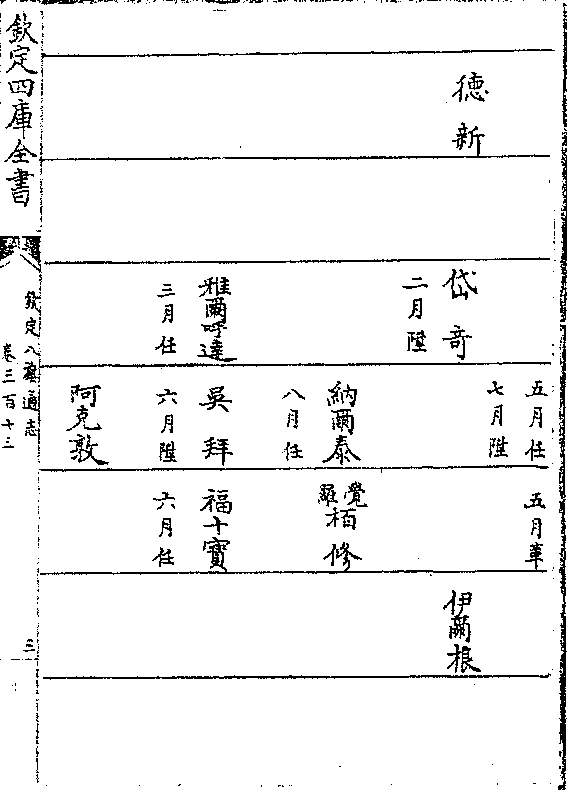 德新
岱奇
二月陞
雅爾呼達
三月任
五月任
七月陞
納爾泰
八月任
吳拜
六月陞
阿克敦
五月革
覺羅栢修
福十寶
六月任
伊爾根
欽定四庫全書
欽定八旗通志
卷三百十三
三